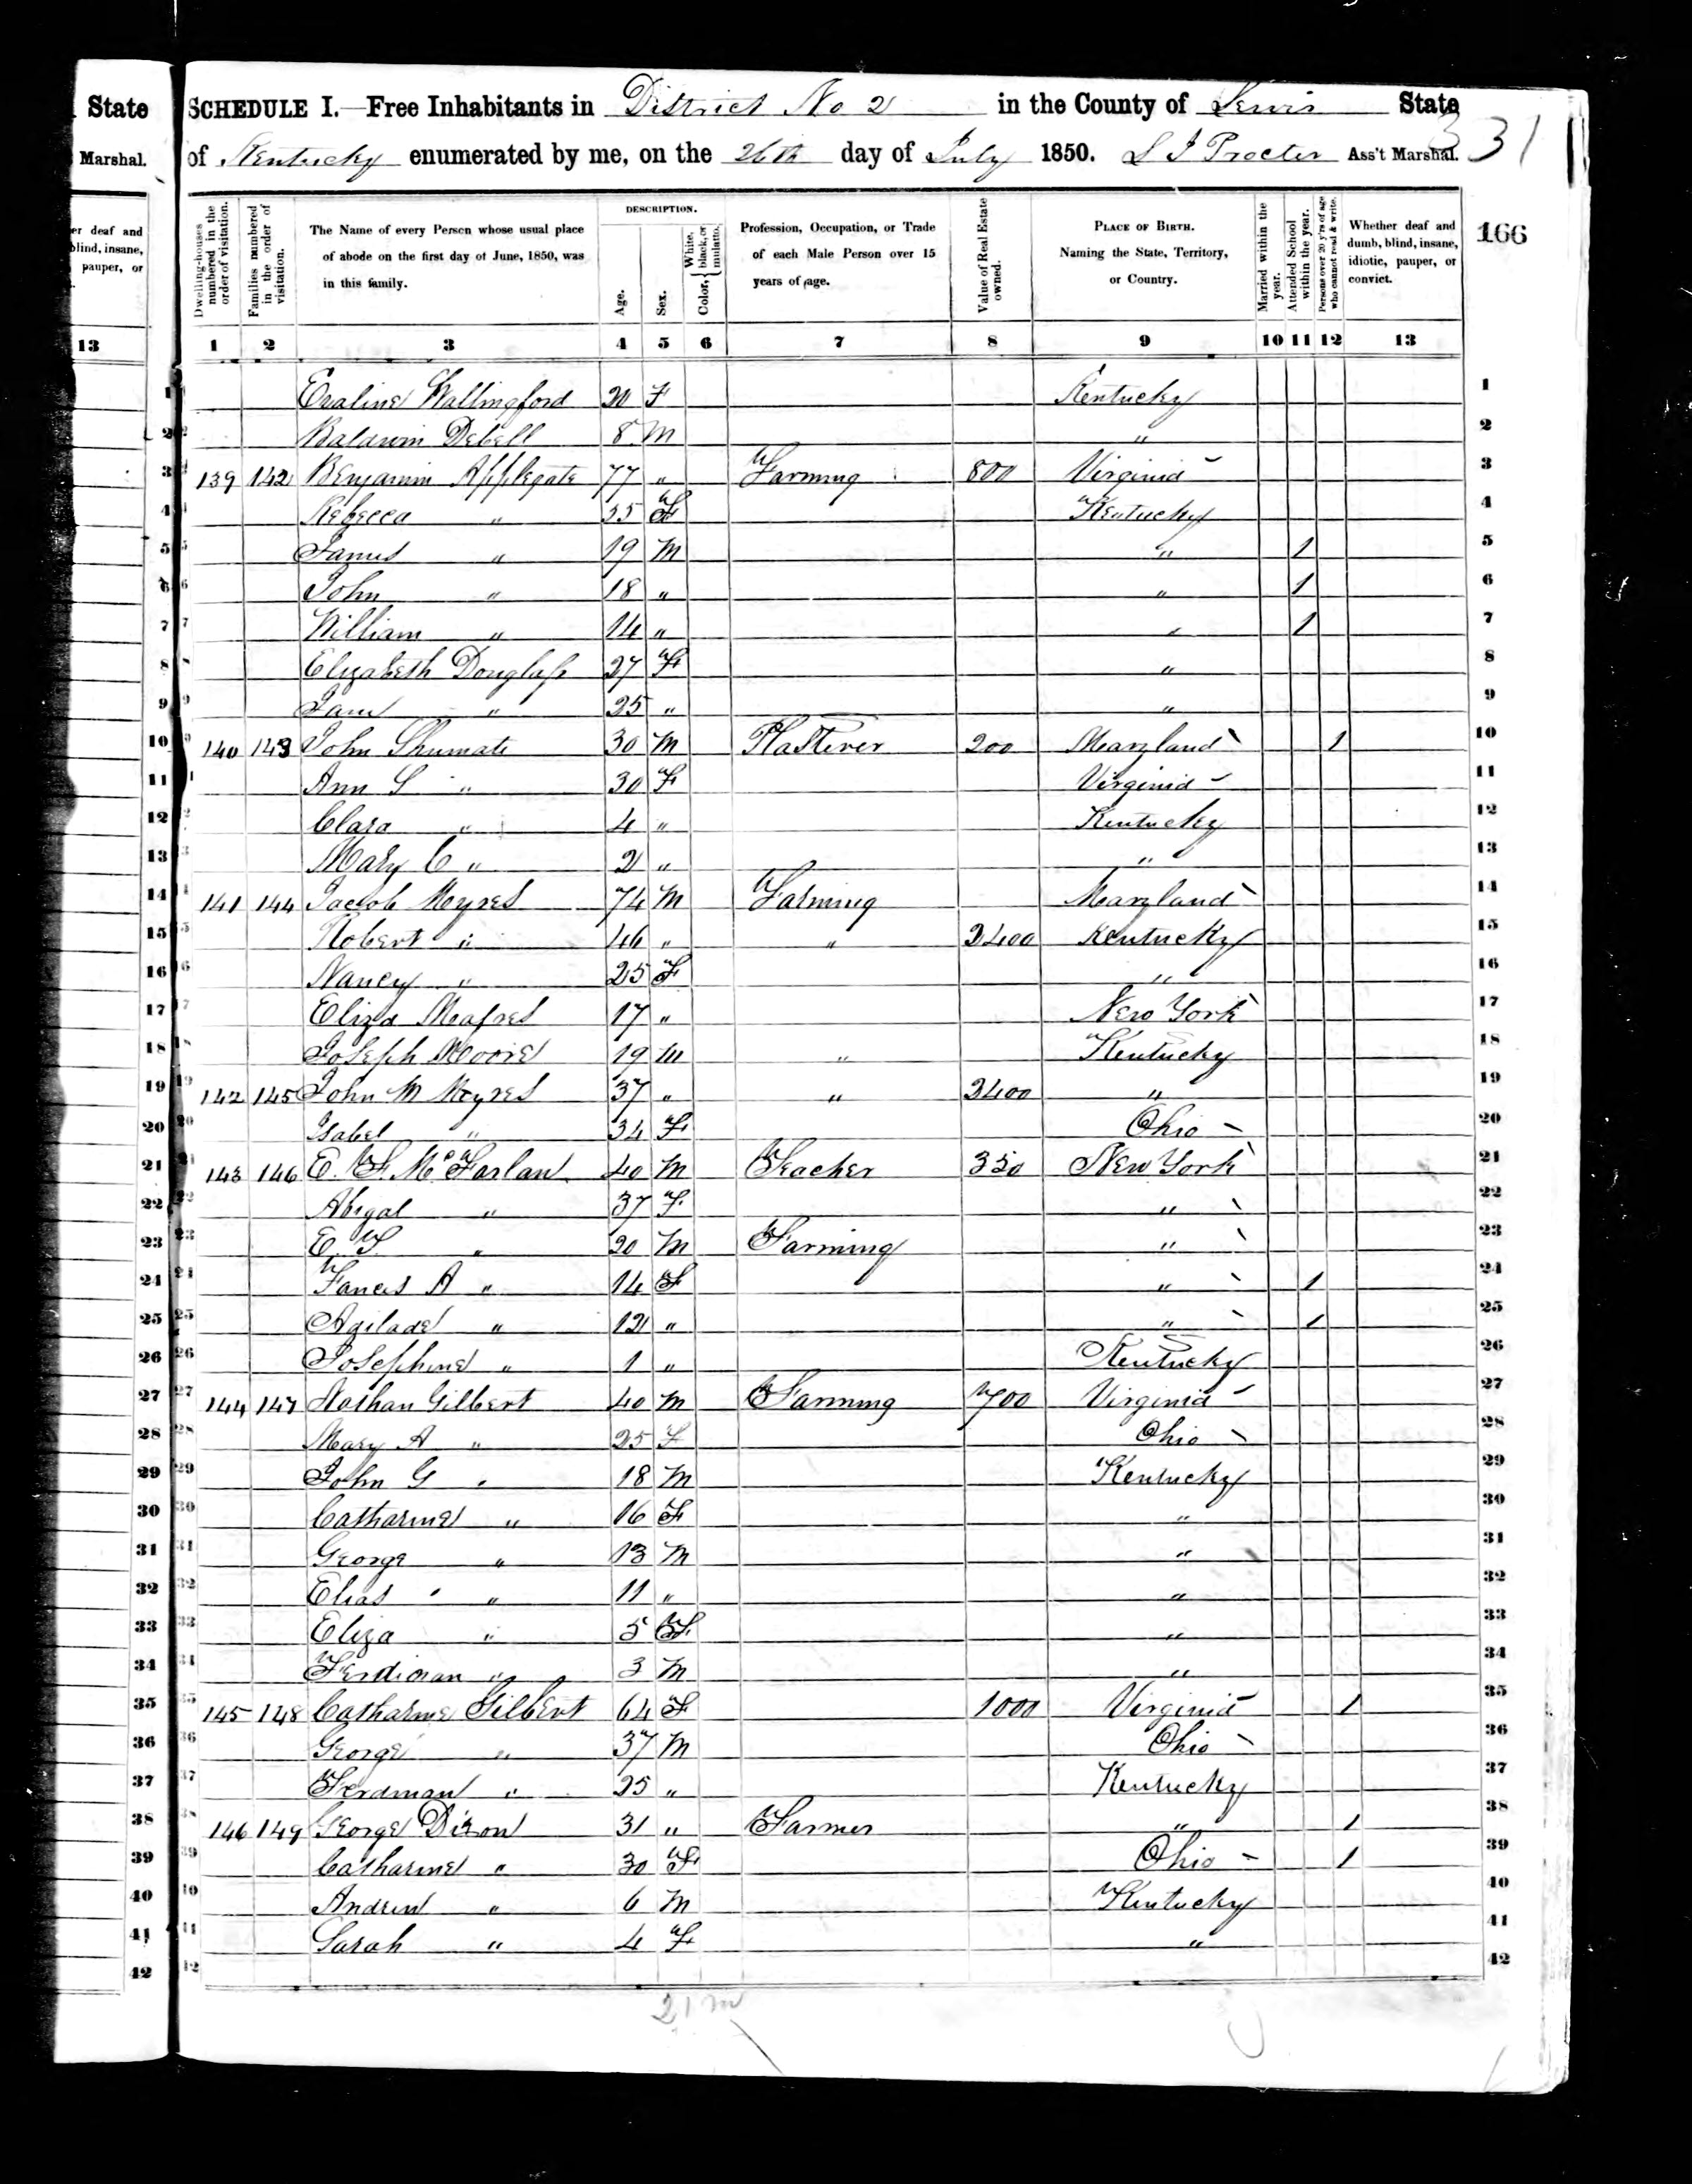 State
Marshal.
er deaf and
blind, insane,
pauper, or
13
SCHEDULE I.—Free Inhabitants in District No 2 in the County of Lewis State
of Kentucky enumerated by me, on the 26th day of July 1850. S J Procter Ass't Marshal.
331
166
Dwelling-houses numbered in the order of visitation.
Families numbered in the order of visitation.
The Name of every Person whose usual place of abode on the first day of June, 1850, was in this family.
DESCRIPTION.
Age.
Sex.
Color, { White, black, or mulatto.
Profession, Occupation, or Trade of each Male Person over 15 years of age.
Value of Real Estate owned.
PLACE OF BIRTH. Naming the State, Territory, or Country.
Married within the year.
Attended School within the year.
Persons over 20 y'rs of age who cannot read & write.
Whether deaf and dumb, blind, insane, idiotic, pauper, or convict.
1 2 3 4 5 6 7 8 9 10 11 12 13
1 Evaline Wallingford 20 F Kentucky 1
2 Baldwin Debell 8 M " 2
3 139 142 Benjamin Applegate 77 " Farming 800 Virginia 3
4 Rebecca " 55 F Kentucky 4
5 James " 19 M " 1 5
6 John " 18 " " 1 6
7 William " 14 " " 1 7
8 Elizabeth Douglass 27 F " 8
9 Jane " 25 " " 9
10 140 143 John Shumate 30 M Plasterer 200 Maryland 1 10
11 Ann S " 30 F Virginia 11
12 Clara " 4 " Kentucky 12
13 Mary C " 2 " " 13
14 141 144 Jacob Meyres 74 M Farming Maryland 14
15 Robert " 46 " " 2400 Kentucky 15
16 Nancy " 25 F " 16
17 Eliza 17 " New York 17
18 Joseph Moore 19 M " Kentucky 18
19 142 145 John M Meyres 37 " " 2400 " 19
20 Isabel " 34 F Ohio 20
21 143 146 E. F. McFarlan 40 M Teacher 350 New York 21
22 Abigal " 37 F " 22
23 E. T " 20 M Farming " 23
24 Fances A " 14 F " 1 24
25 Agilade " 12 " " 1 25
26 Josephine " 1 " Kentucky 26
27 144 147 Nathan Gilbert 40 M Farming 700 Virginia 27
28 Mary A " 25 F Ohio 28
29 John G " 18 M Kentucky 29
30 Catharine " 16 F " 30
31 George " 13 M " 31
32 Elias " 11 " " 32
33 Eliza " 5 F " 33
34 Ferdinan " 3 M " 34
35 145 148 Catharine Gilbert 64 F 1000 Virginia 1 35
36 George " 37 M Ohio 36
37 Ferdman " 25 " Kentucky 37
38 146 149 George Dixon 31 " Farmer " 1 38
39 Catharine " 30 F Ohio 1 39
40 Andrew " 6 M Kentucky 40
41 Sarah " 4 F " 41
42 42
21 m